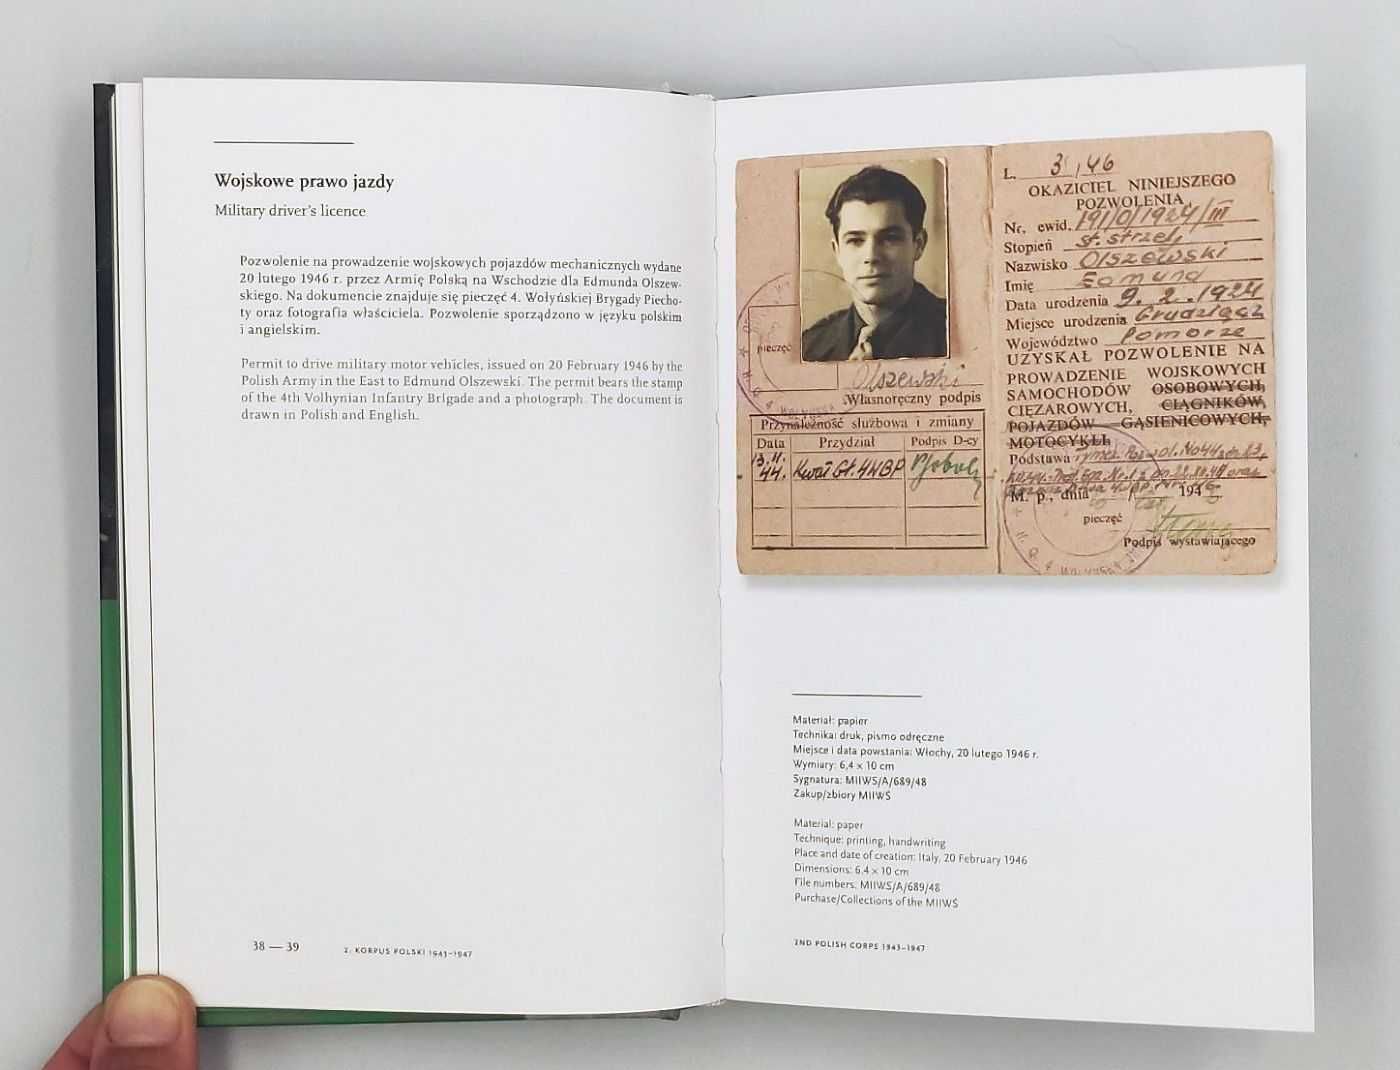 Wojskowe prawo jazdy
Military driver's licence
Pozwolenie na prowadzenie wojskowych pojazdów mechanicznych wydane
20 lutego 1946 r. przez Armię Polską na Wschodzie dla Edmunda Olszew-
skiego. Na dokumencie znajduje się pieczęć 4. Wołyńskiej Brygady Piecho-
ty oraz fotografia właściciela. Pozwolenie sporządzono w języku polskim
i angielskim.
Permit to drive military motor vehicles, issued on 20 February 1946 by the
Polish Army in the East to Edmund Olszewski. The permit bears the stamp
of the 4th Volhynian Infantry Brigade and a photograph. The document is
drawn in Polish and English.
38 — 39
2. KORPUS POLSKI 1943–1947
pieczęć
Olszewski
Własnoręczny podpis
Przynależność służbowa i zmiany
Data Przydział Podpis D-cy
13.11.
44. Kwat Gł. 4WBP
L. 3 / 46
OKAZICIEL NINIEJSZEGO
POZWOLENIA
Nr. ewid. 191/0/1924/III
Stopień st. strzel.
Nazwisko Olszewski
Imię Edmund
Data urodzenia 9. 2. 1924
Miejsce urodzenia Grudziądz
Województwo Pomorze
UZYSKAŁ POZWOLENIE NA
PROWADZENIE WOJSKOWYCH
SAMOCHODÓW OSOBOWYCH,
CIĘŻAROWYCH, CIĄGNIKÓW,
POJAZDÓW GĄSIENICOWYCH,
MOTOCYKLI.
Podstawa
M. p., dnia 194
pieczęć
Podpis wystawiającego
Materiał: papier
Technika: druk, pismo odręczne
Miejsce i data powstania: Włochy, 20 lutego 1946 r.
Wymiary: 6,4 × 10 cm
Sygnatura: MIIWŚ/A/689/48
Zakup/zbiory MIIWŚ
Material: paper
Technique: printing, handwriting
Place and date of creation: Italy, 20 February 1946
Dimensions: 6.4 × 10 cm
File numbers: MIIWŚ/A/689/48
Purchase/Collections of the MIIWŚ
2ND POLISH CORPS 1943–1947